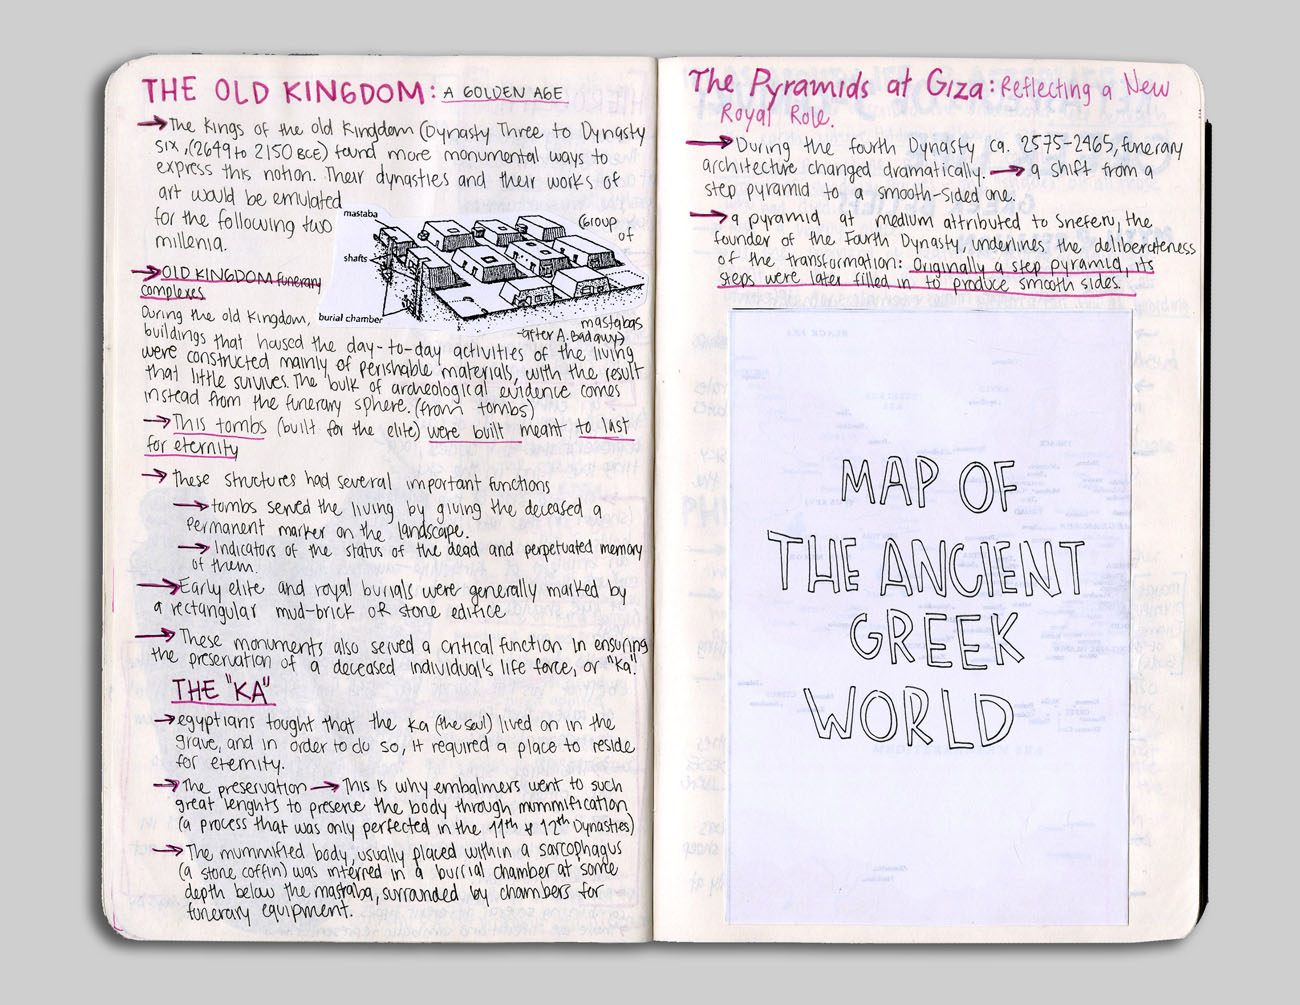 THE OLD KINGDOM: A GOLDEN AGE
→The Kings of the old Kingdom (Dynasty Three to Dynasty
six, (2649 to 2150 BCE) found more monumental ways to
express this notion. Their dynasties and their works of
art would be emulated
for the following two
millenia.
mastaba
shafts
burial chamber
(Group
of
mastabas
-after A. Badawy)
→OLD KINGDOM funerary
complexes
During the old Kingdom,
buildings that housed the day-to-day activities of the living
were constructed mainly of perishable materials, with the result
that little survives. The bulk of archeological evidence comes
instead from the funerary sphere. (from tombs)
→This tombs (built for the elite) were built meant to last
for eternity
→These structures had several important functions
→tombs served the living by giving the deceased a
permanent marker on the landscape.
→Indicators of the status of the dead and perpetuated memory
of them.
→Early elite and royal burials were generally marked by
a rectangular mud-brick OR stone edifice
→These monuments also served a critical function in ensuring
the preservation of a deceased individual's life force, or "ka".
THE "KA"
→egyptians tought that the Ka (the soul) lived on in the
grave, and in order to do so, it required a place to reside
for eternity.
→The preservation→This is why embalmers went to such
great lenghts to preserve the body through mummification
(a process that was only perfected in the 11th & 12th Dynasties)
→The mummified body, usually placed within a sarcophagus
(a stone coffin) was interred in a burrial chamber at some
depth below the mastaba, surrounded by chambers for
funerary equipment.
The Pyramids at Giza: Reflecting a New
Royal Role.
→During the fourth Dynasty ca. 2575-2465, funerary
architecture changed dramatically. → a shift from a
step pyramid to a smooth-sided one.
→a pyramid at medium attributed to Sneferu, the
founder of the Fourth Dynasty, underlines the deliberateness
of the transformation: Originally a step pyramid, its
steps were later filled in to produce smooth sides.
MAP OF
THE ANCIENT
GREEK
WORLD